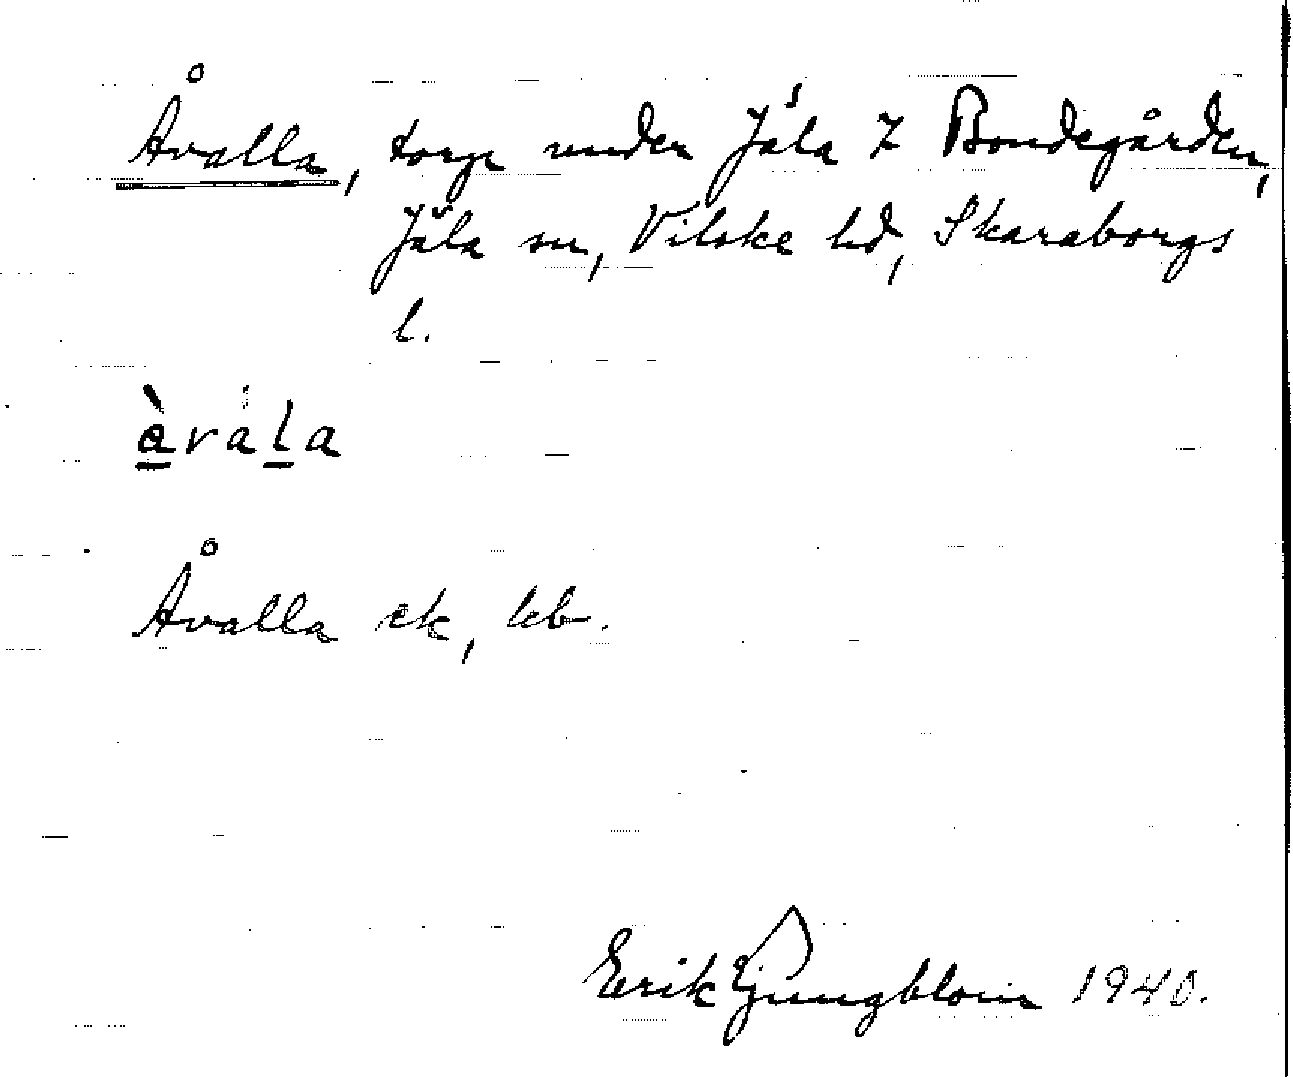 Åvalla, torp under Jäla 7 Bondegården,
Jäla sn, Vilske hd, Skaraborgs
l.
àvala
Åvalla ek, lcb.
Erik Ljungblom 1940.